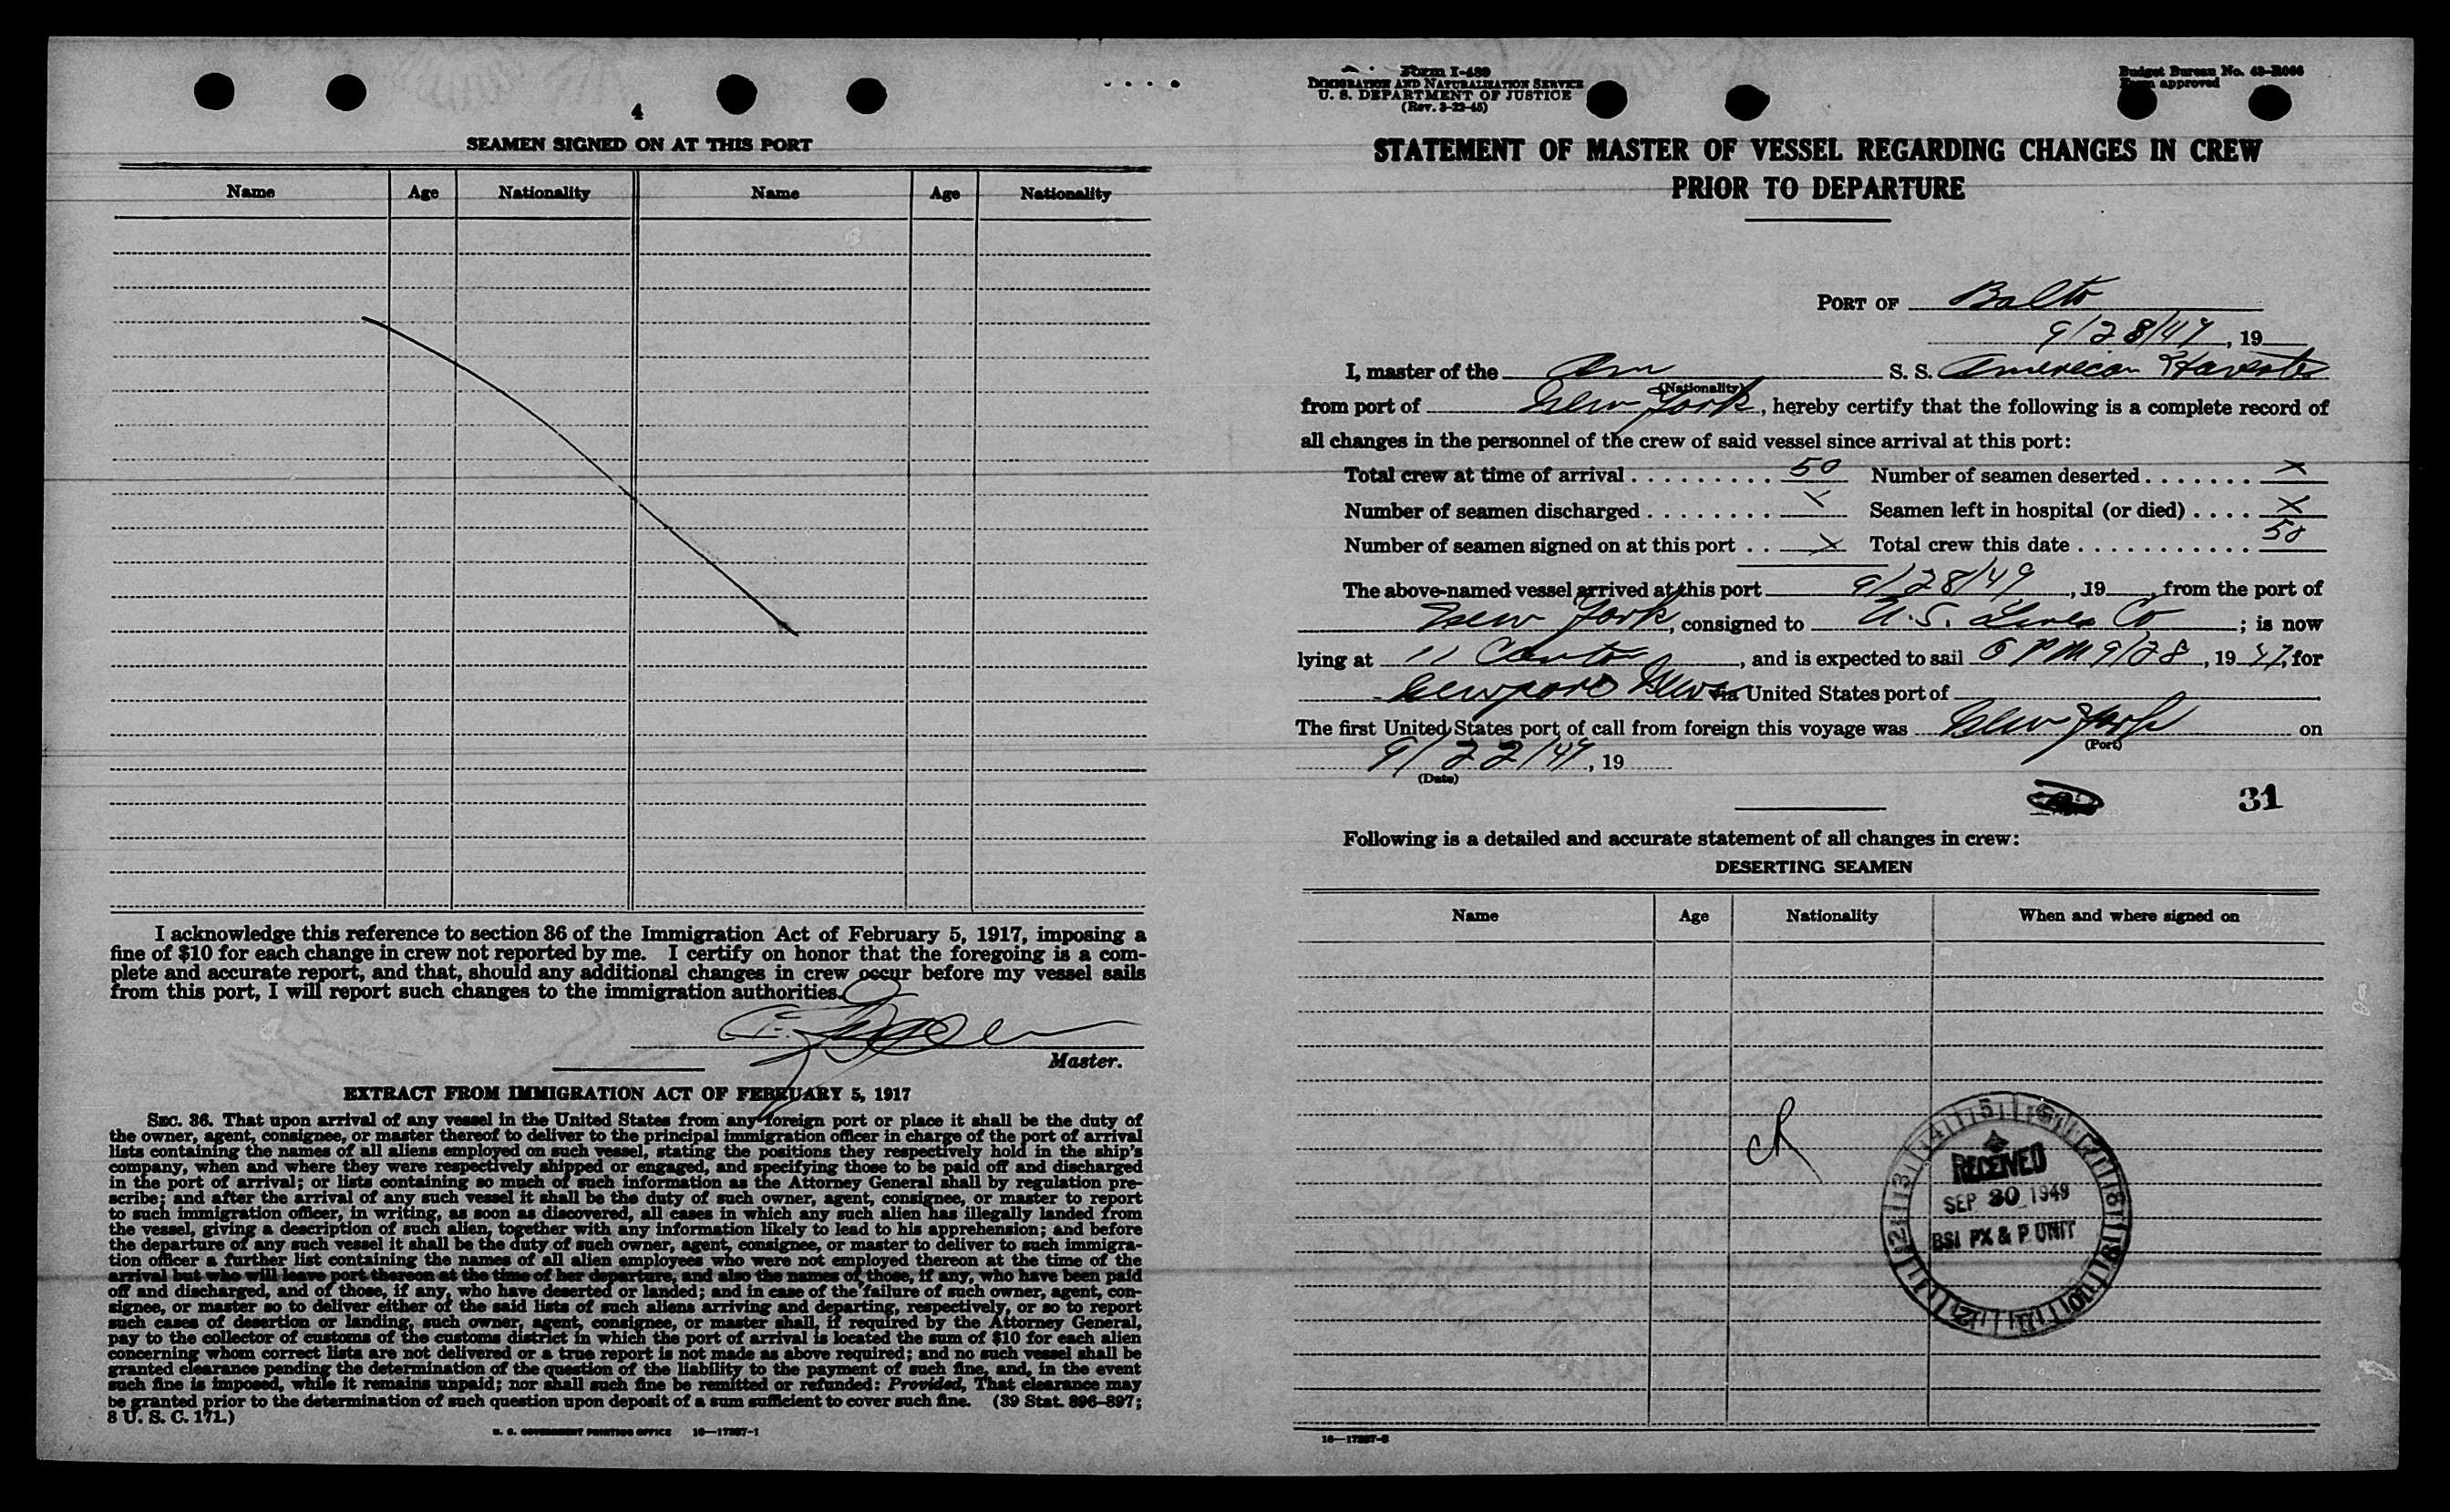 4
SEAMEN SIGNED ON AT THIS PORT
Name Age Nationality Name Age Nationality
I acknowledge this reference to section 36 of the Immigration Act of February 5, 1917, imposing a
fine of $10 for each change in crew not reported by me. I certify on honor that the foregoing is a com-
plete and accurate report, and that, should any additional changes in crew occur before my vessel sails
from this port, I will report such changes to the immigration authorities.
Master.
EXTRACT FROM IMMIGRATION ACT OF FEBRUARY 5, 1917
SEC. 36. That upon arrival of any vessel in the United States from any foreign port or place it shall be the duty of
the owner, agent, consignee, or master thereof to deliver to the principal immigration officer in charge of the port of arrival
lists containing the names of all aliens employed on such vessel, stating the positions they respectively hold in the ship's
company, when and where they were respectively shipped or engaged, and specifying those to be paid off and discharged
in the port of arrival; or lists containing so much of such information as the Attorney General shall by regulation pre-
scribe; and after the arrival of any such vessel it shall be the duty of such owner, agent, consignee, or master to report
to such immigration officer, in writing, as soon as discovered, all cases in which any such alien has illegally landed from
the vessel, giving a description of such alien, together with any information likely to lead to his apprehension; and before
the departure of any such vessel it shall be the duty of such owner, agent, consignee, or master to deliver to such immigra-
tion officer a further list containing the names of all alien employees who were not employed thereon at the time of the
arrival but who will leave port thereon at the time of her departure, and also the names of those, if any, who have been paid
off and discharged, and of those, if any, who have deserted or landed; and in case of the failure of such owner, agent, con-
signee, or master so to deliver either of the said lists of such aliens arriving and departing, respectively, or so to report
such cases of desertion or landing, such owner, agent, consignee, or master shall, if required by the Attorney General,
pay to the collector of customs of the customs district in which the port of arrival is located the sum of $10 for each alien
concerning whom correct lists are not delivered or a true report is not made as above required; and no such vessel shall be
granted clearance pending the determination of the question of the liability to the payment of such fine, and, in the event
such fine is imposed, while it remains unpaid; nor shall such fine be remitted or refunded: Provided, That clearance may
be granted prior to the determination of such question upon deposit of a sum sufficient to cover such fine. (39 Stat. 896–897;
8 U. S. C. 171.)
U. S. GOVERNMENT PRINTING OFFICE 16—17287-1
Form I-489
IMMIGRATION AND NATURALIZATION SERVICE
U. S. DEPARTMENT OF JUSTICE
(Rev. 3-22-45)
Budget Bureau No. 43-R066
Form approved
STATEMENT OF MASTER OF VESSEL REGARDING CHANGES IN CREW
PRIOR TO DEPARTURE
PORT OF Balto
9/28/49, 19
I, master of the Am S. S. American Harvester
(Nationality)
from port of New York, hereby certify that the following is a complete record of
all changes in the personnel of the crew of said vessel since arrival at this port:
Total crew at time of arrival 50 Number of seamen deserted X
Number of seamen discharged X Seamen left in hospital (or died) X
Number of seamen signed on at this port X Total crew this date 50
The above-named vessel arrived at this port 9/28/49, 19 , from the port of
New York, consigned to U.S. Lines Co ; is now
lying at 11 Canton, and is expected to sail 6 PM 9/28, 19 49, for
Newport News via United States port of
The first United States port of call from foreign this voyage was New York on
(Port)
9/22/49, 19
(Date)
31
Following is a detailed and accurate statement of all changes in crew:
DESERTING SEAMEN
Name Age Nationality When and where signed on
CR
RECEIVED
SEP 30 1949
BSI PX & P UNIT